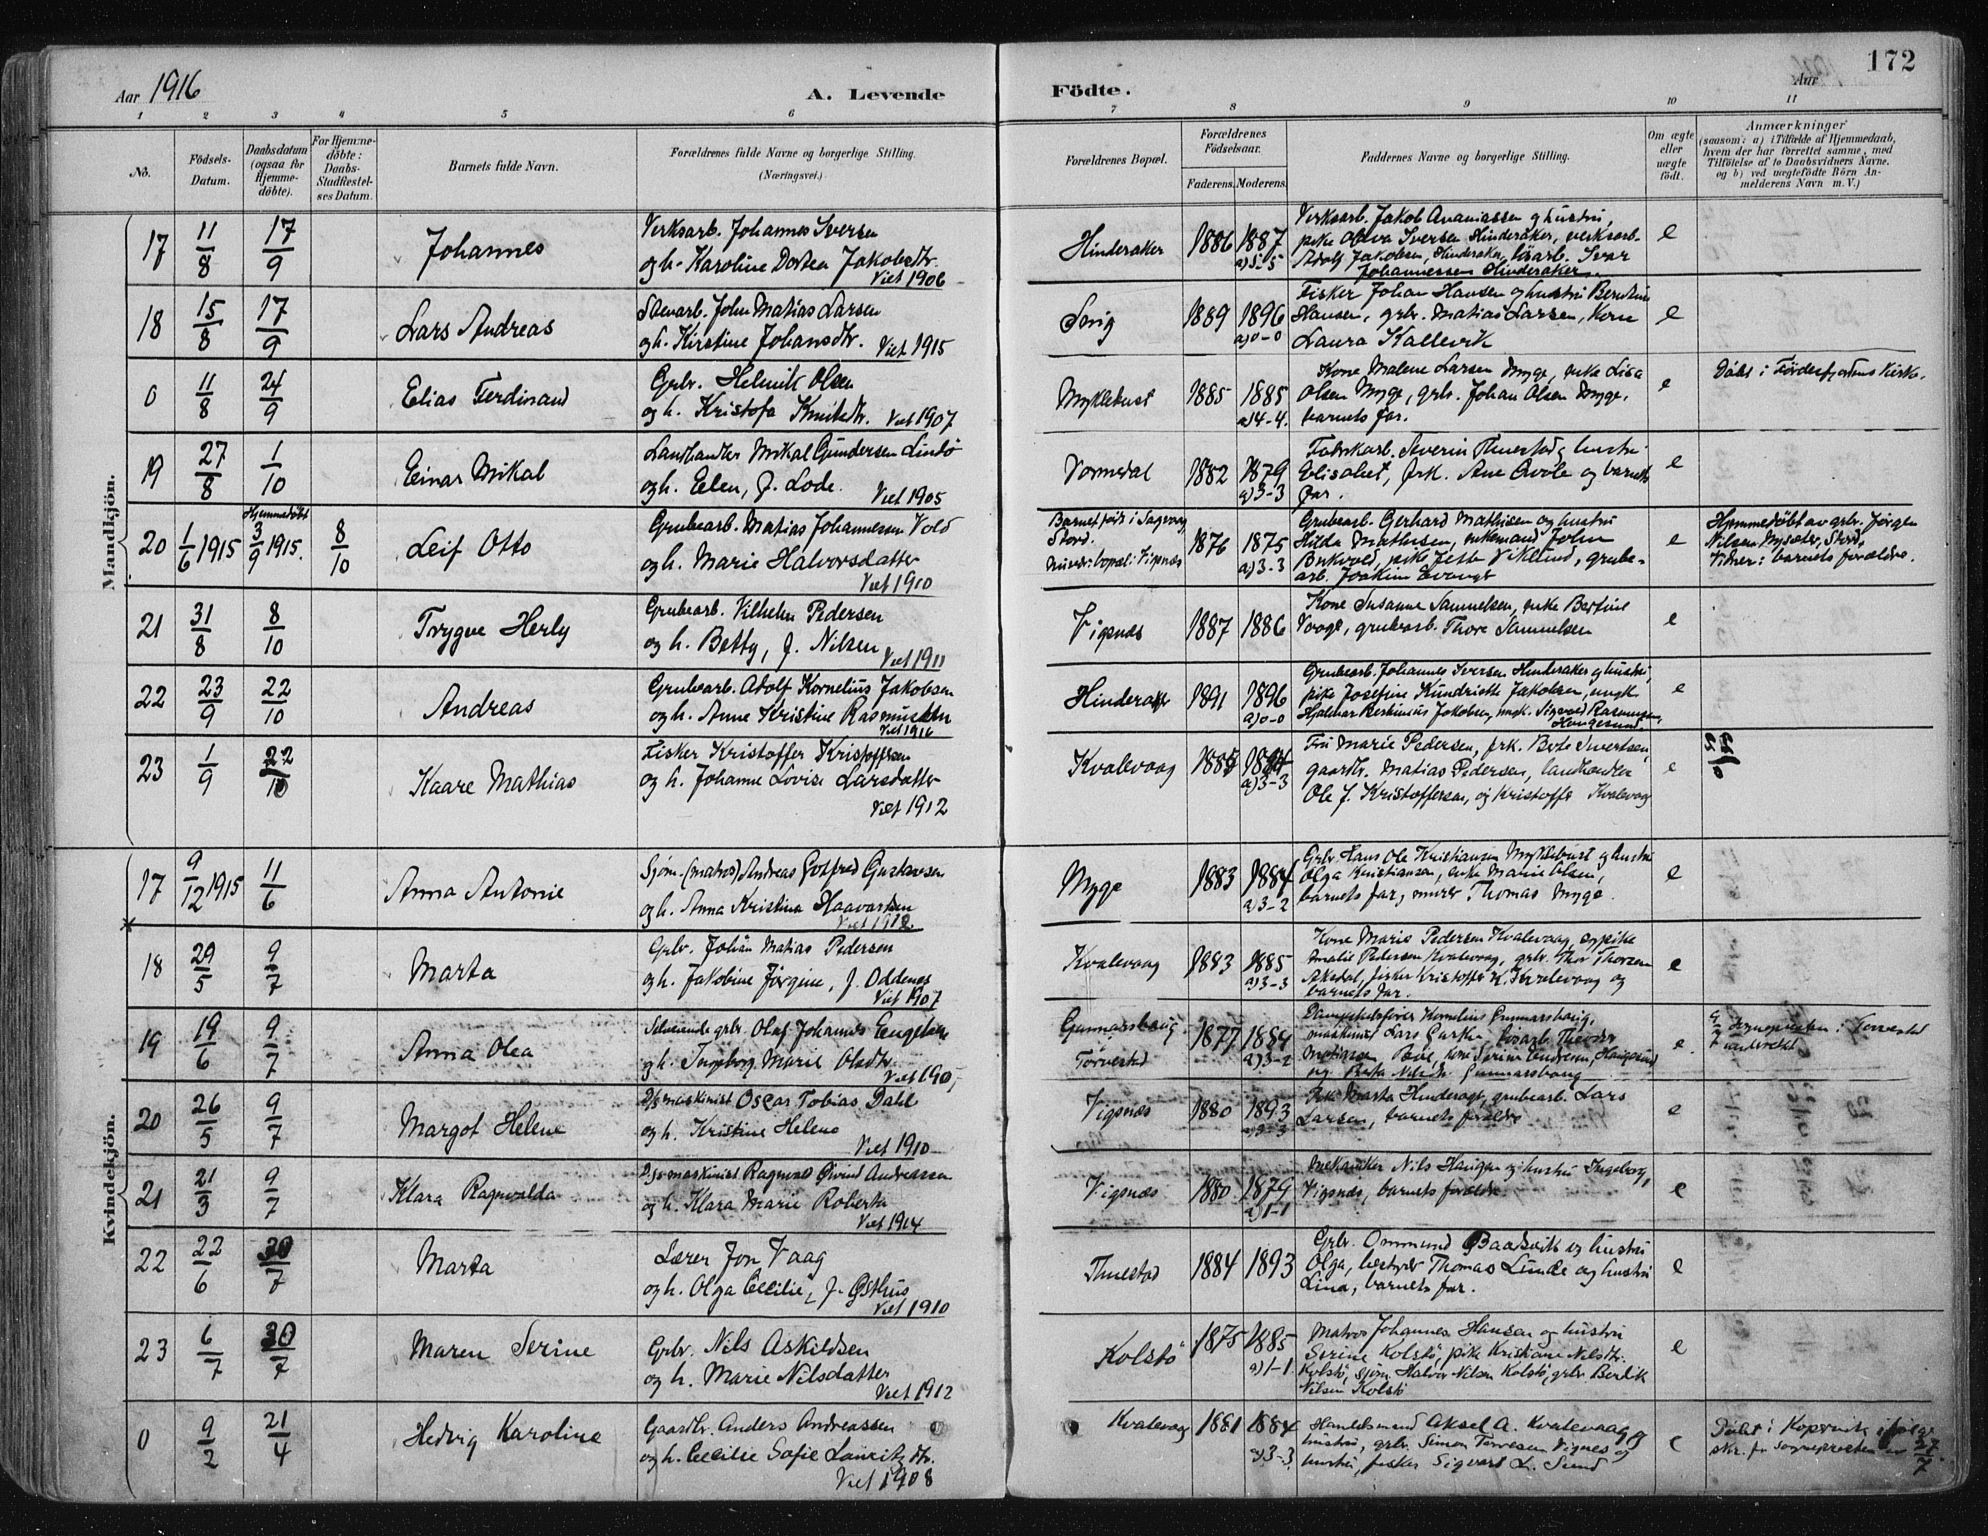 172
Aar 1916
A. Levende
Födte.
Aar
1 2 3 4 5 6 7 8 9 10 11
No.
Födsels-Datum.
Daabsdatum (ogsaa for Hjemme-döbte).
For Hjemme-döbte: Daabs-Stadfæstel-ses Datum.
Barnets fulde Navn.
Forældrenes fulde Navne og borgerlige Stilling.
(Næringsvei.)
Forældrenes Bopæl.
Forældrenes Födselsaar.
Faderens. Moderens.
Faddernes Navne og borgerlige Stilling.
Om ægte eller uægte födt.
Anmærkninger
(saasom: a) i Tilfælde af Hjemmedaab,
hvem der har forrettet samme, med
Tilföielse af to Daabsvidners Navne.
og b) ved uægtefödte Börn An-
melderens Navn m. V.)
Mandkjön.
17 11/8 17/9 Johannes
Verksarb. Johannes Iversen
og h. Karoline Dortea Jakobsdtr.
Viet 1906
Hinderaker 1886 1887 a) 5-5
Verksarb. Jakob Ananiassen og hustru,
pike Oliva Iversen Hinderaker, verksarb.
Adolf Jakobsen, Hinderaker, lösarb. Ivar
Johannessen Hinderaker
e
18 15/8 17/9 Lars Andreas
John Matias Larsen
og h. Kirstine Johansdtr. Viet 1915
1889 1896 a) 0-0
Fisker Johan Hansen og hustru
Hansen, grbr. Matias Larsen, Kone
Laura Kallevik
e
0 11/8 24/9 Elias Ferdinand
Grbr. Helmik Olsen
og h. Kristofa Knutsdtr. Viet 1907
Myklebust 1885 1885 a) 4-4.
Kone Malene Larsen Myge, enke Lisa
Olsen Myge, grbr. Johan Olsen Myge,
barnets far.
e
Döbt i Førdesfjordens Kirke.
19 27/8 1/10 Einar Mikal
Landhandler Mikal Gundersen Lindö
og h. Elen, f. Lode. Viet 1905
Vormedal 1882 1879 a) 3-3
Fabrikarb. Severin Thuestad, hustru
Elisabet, frk. Ane Qvale og barnets
far.
e
20 1/6 1915 Hjemmedöbt 3/9 1915. 8/10 Leif Otto
Grubearb. Matias Johannesen Vold
og h. Marie Halvorsdatter
Viet 1910
Barnet født i Sagvaag
Stord.
bopæl: Vigsnes
1876 1875 a) 3-3
Grubearb. Gerhard Mathisen og hustru
Hilda Mathisen, enkemand John
pike Viklund, grube-
arb. Joakim
e
Hjemmedöbt av grbr. Jørgen
Nilsen Stord,
Vidner: barnets forældre.
21 31/8 8/10 Trygve Herly
Grubearb. Vilhelm Pedersen
og h. Betty, f. Nilsen Viet 1911
Vigsnæs 1887 1886
Kone Susanne Samuelsen, enke Bertine
Vaage, grubearb. Thore Samuelsen
e
22 23/9 22/10 Andreas
Grubearb. Adolf Kornelius Jakobsen
og h. Anne Kristine Rasmussen
Viet 1916
Hinderaker 1891 1896 a) 0-0
Grubearb. Johannes Iversen Hinderaker og hustru,
pike Josefine Jakobsen, ungk.
Hjalmar Jakobsen, ungk. Sigvald Rasmussen,
Haugesund.
e
23 1/9 22/10 Kaare Mathias
Fisker Kristoffer Kristoffersen
og h. Johanne Lovise Larsdatter
Viet 1912
Kvalevaag a) 3-3
Fru Marie Pedersen, frk. Sivertsen,
gaardbr. Matias Pedersen, landhandler
Ole J. Kristoffersen, og Kristoffer Kvalevaag
e
Kvindekjön.
17 9/12 1915 11/6 Anna Antonie
Sjøm. (matros) Andreas Gotfred Gustavsen
og h. Anna Kristina Haavardsen
Viet 1912
Myge 1883 1884 a) 3-2
Grbr. Hans Ole Kristiansen Myklebust og hustru
Olga Kristiansen, enke Marie Olsen,
barnets far, murer Thomas Myge.
e
18 29/5 9/7 Marta
Grbr. Johan Matias Pedersen
og h. Jakobine Jørgine, f. Oddenes
Viet 1907
Kvalevaag 1883 1885 a) 3-3
Kone Marie Pedersen Kvalevaag,
Malie Pedersen Kvalevaag, grbr. Thor Thorsen
Aksdal, fisker Kristoffer K. Kvalevaag og
barnets far.
e
19 19/6 9/7 Anna Olea
grbr. Olaf Johannes Engelsen
og h. Ingeborg Marie Olsdtr.
Viet 190
Gunnarshaug
Torvestad
1877 1884 a) 3-2
Kornelius Gunnarshaug,
maskinist Lars lösarb. Theodor
Matiassen Bøe, kone Serine Andresen, Haugesund
og Berta Gunnarshaug
e
9/7 Sognepresten i Torvestad
underrettet
20 26/5 9/7 Margot Helene
D/s maskinist Oscar Tobias Dahl
og h. Kristine Helene
Viet 1910
Vigsnæs 1880 1893 a) 3-3
Frk. Marta grubearb. Lars
Larsen, barnets forældre
e
21 21/3 9/7 Klara Ragnvalda
D/s maskinist Ragnvald Øivind Andreassen
og h. Klara Marie Roberta
Viet 1914
Vigsnæs 1880 1879 a) 1-1
Mekaniker Nils Haugen og hustru Ingeborg,
Vigsnæs, barnets forældre.
e
22 22/6 30/7 Marta
Lærer Jon Vaag
og h. Olga Cecilie, f. Østhus
Viet 1910
Thuestad 1884 1893
Grbr. Ommund Baardsvik og hustru
Olga, bestyrer Thomas Lunde og hustru
Lina, barnets far.
e
23 6/7 30/7 Maren Serine
Grbr. Nils Askildsen
og h. Marie Nilsdatter
Viet 1912
Kolstö 1875 1885 a) 1-1.
Matros Johannes Hansen og hustru
Serine Kolstö, pike Kristiane Nilsdtr.
Kolstö, sjøm. Halvor Nilsen Kolstö, grbr. Berdik
Nilsen Kolstö
e
0 9/2 21/4 Hedvig Karoline
Gaardbr. Anders Andreassen
og h. Cecilie Sofie Lauritzdtr.
Viet 1908
Kvalevaag 1881 1884 a) 3-3.
Handelsmand Aksel A. Kvalevaag og
hustru, grbr. Simon Torvesen Vignes og
hustru, fisker Sigvart L. Sund
e
Döbt i Kopervik ifølge
skr. fr. sognepresten av 27/7